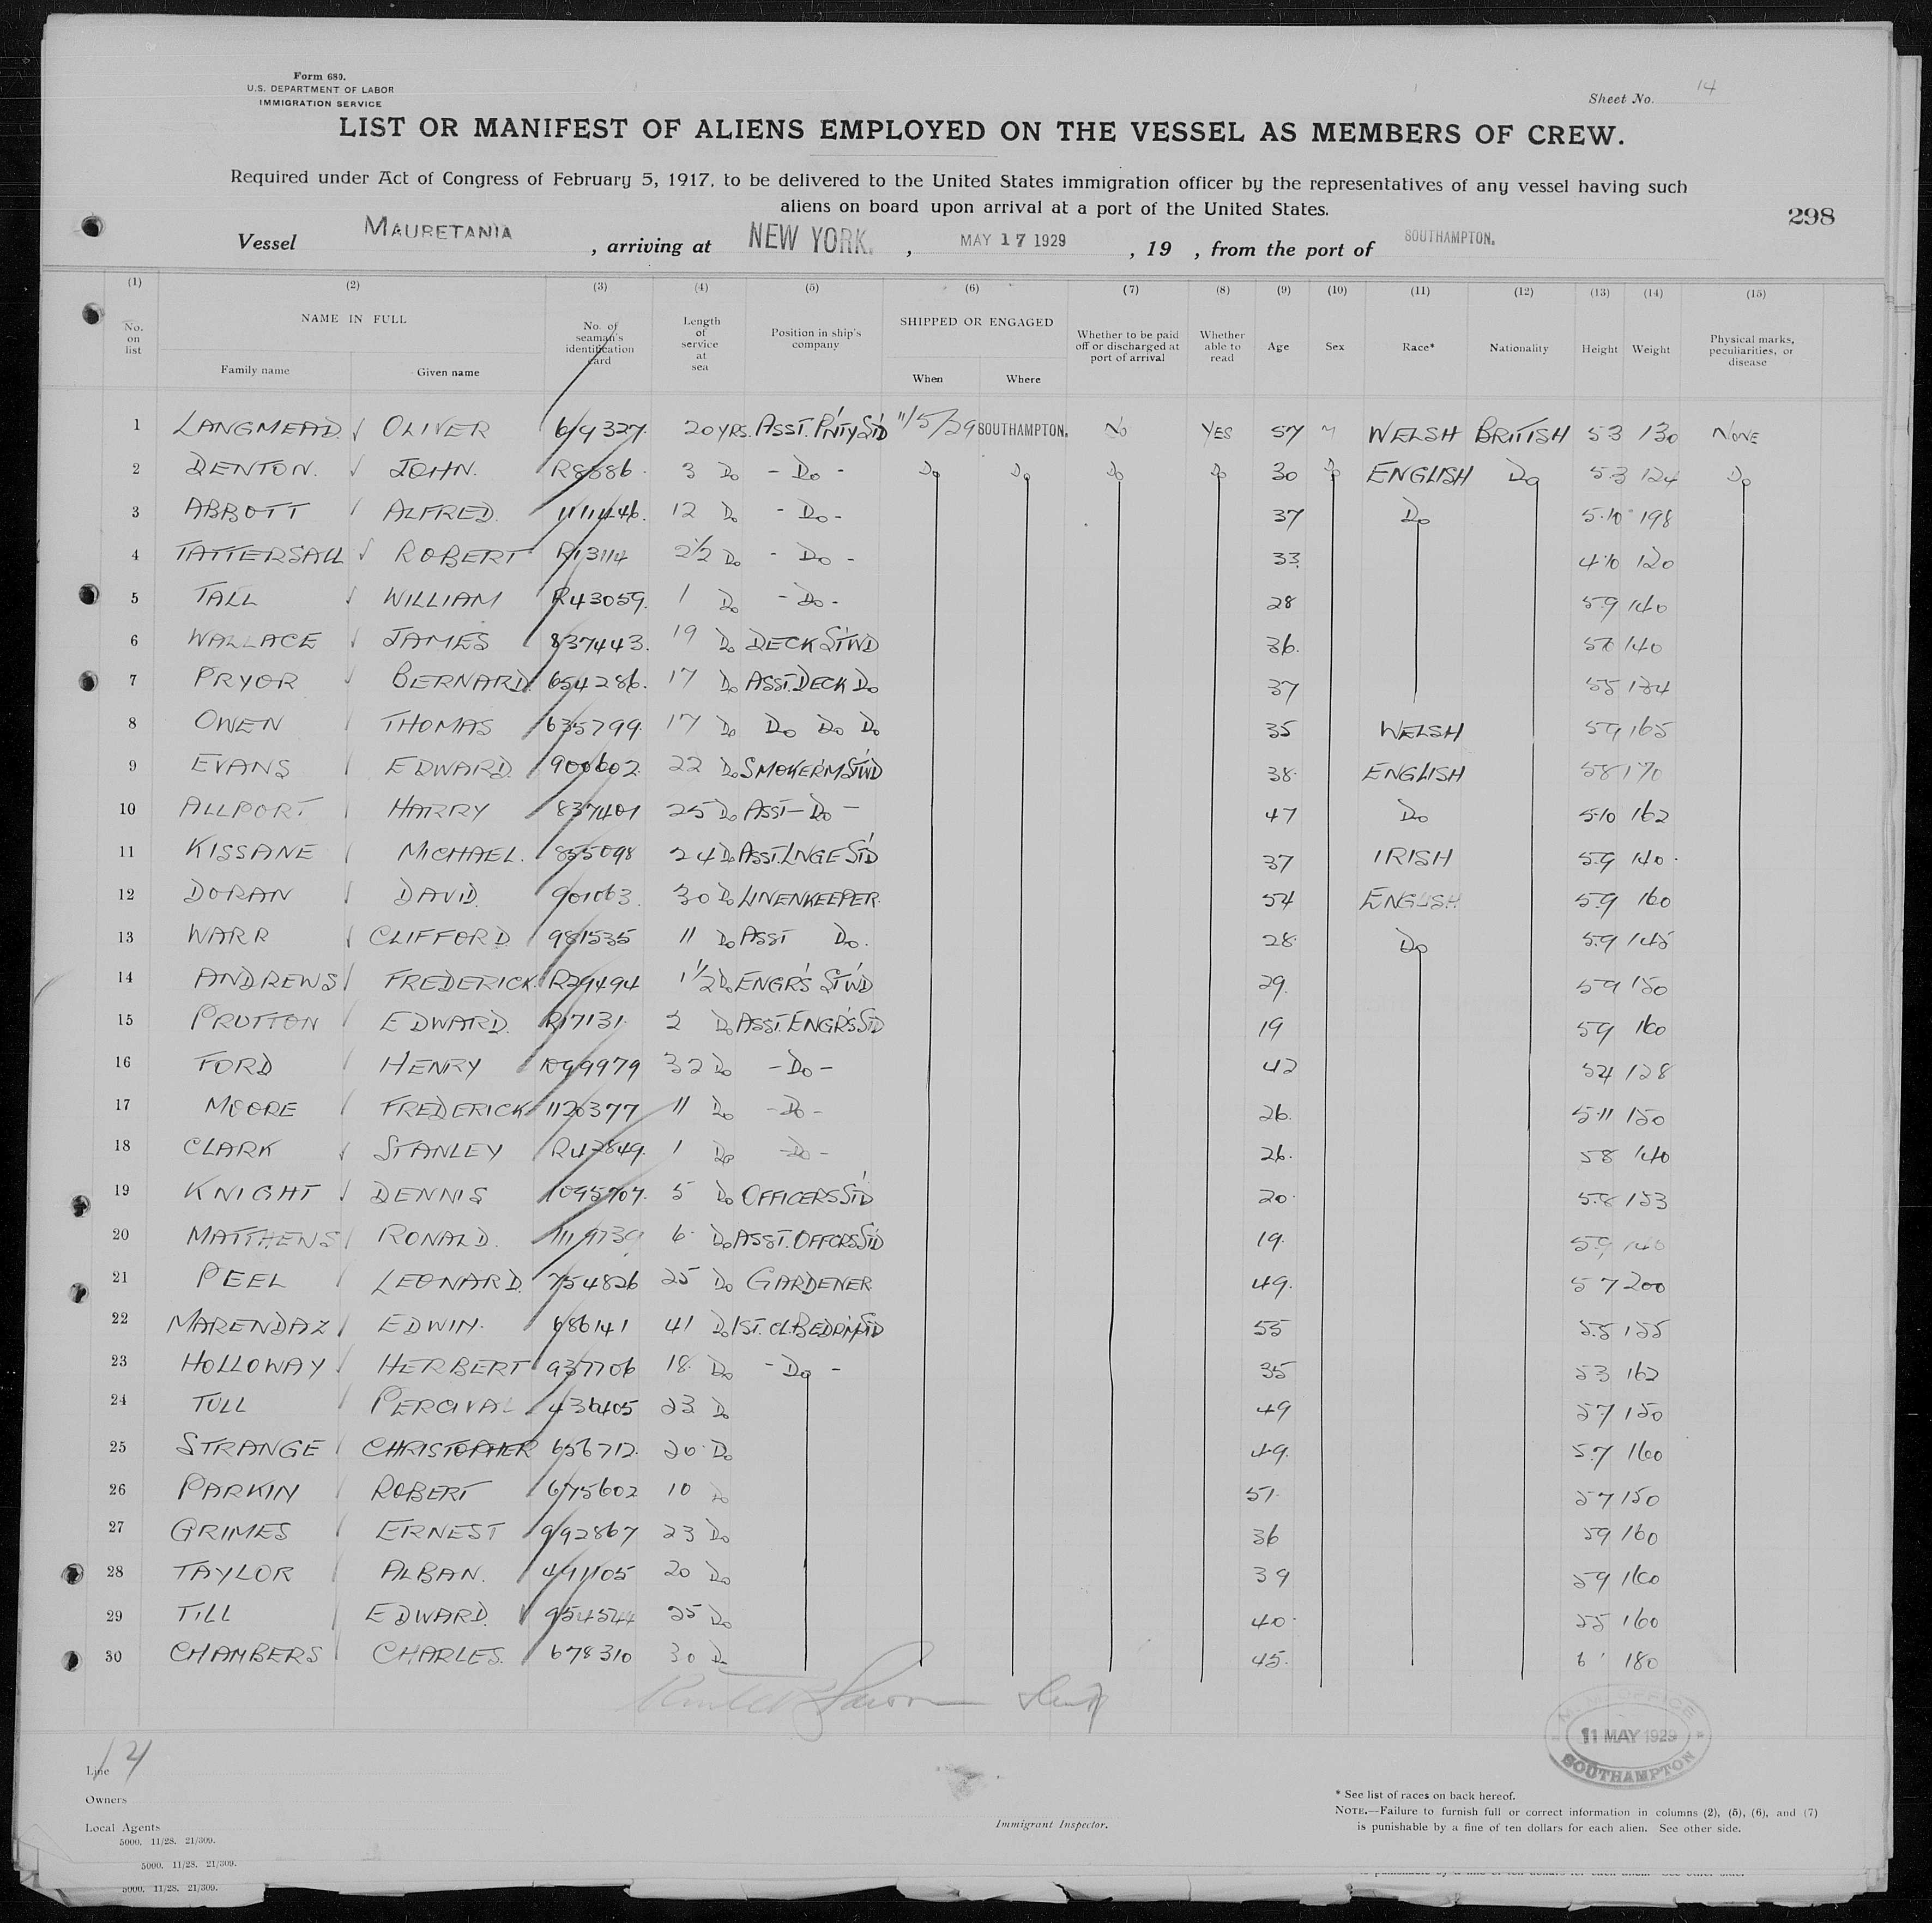 Form 680.
U.S. DEPARTMENT OF LABOR
IMMIGRATION SERVICE
Sheet No. 14
LIST OR MANIFEST OF ALIENS EMPLOYED ON THE VESSEL AS MEMBERS OF CREW.
Required under Act of Congress of February 5, 1917, to be delivered to the United States immigration officer by the representatives of any vessel having such
aliens on board upon arrival at a port of the United States.
298
Vessel MAURETANIA, arriving at NEW YORK., MAY 17 1929, 19 , from the port of SOUTHAMPTON.
(1) (2) (3) (4) (5) (6) (7) (8) (9) (10) (11) (12) (13) (14) (15)
No. on list NAME IN FULL Family name Given name No. of seaman's identification card Length of service at sea Position in ship's company SHIPPED OR ENGAGED When Where Whether to be paid off or discharged at port of arrival Whether able to read Age Sex Race* Nationality Height Weight Physical marks, peculiarities, or disease
1 LANGMEAD OLIVER 20 YRS. ASST. P'NTY ST'D 11/5/29 SOUTHAMPTON. No YES 57 M WELSH BRITISH 53 130 NONE
2 DENTON. JOHN. R8886. 3 Do - Do - Do Do Do Do 30 Do ENGLISH Do 5.3 124 Do
3 ABBOTT ALFRED. 1111446. 12 Do - Do - 37 Do 5.10 198
4 TATTERSALL ROBERT R13114 2½ Do - Do - 33 4.10 120
5 TALL WILLIAM R43059. 1 Do - Do - 28 59 140
6 WALLACE JAMES 837443. 19 Do DECK ST'WD 36. 140
7 PRYOR BERNARD. 654286. 17 Do ASST. DECK Do 37 55 134
8 OWEN THOMAS 635799. 17 Do Do Do Do 35 WELSH 59 165
9 EVANS EDWARD. 900602 22 Do SMOKER'M ST'WD 38. ENGLISH 58 170
10 ALLPORT HARRY 837401 25 Do ASST - Do - 47 Do 5.10 162
11 KISSANE MICHAEL. 855098 24 Do ASST. LNGE ST'D 37 IRISH 5.9 140.
12 DORAN DAVID. 901063. 30 Do LINENKEEPER. 54 ENGLISH 5.9 160
13 WARR CLIFFORD. 981535 11 Do ASST Do. 28. Do 5.9 145
14 ANDREWS FREDERICK. R29494 1½ Do ENGR'S ST'WD 29. 59 150
15 PRUTTON EDWARD. R17131. 2 Do ASST. ENGR'S ST'D 19 59 160
16 FORD HENRY 1099979 32 Do - Do - 42 54 128
17 MOORE FREDERICK 1120377 11 Do - Do - 26. 5.11 150
18 CLARK STANLEY R47849. 1 Do - Do - 26. 58 140
19 KNIGHT DENNIS 1095707. 5 Do OFFICERS ST'D 20. 5.8 153
20 MATTHEWS RONALD. 1119739 6. Do ASST. OFFCRS ST'D 19. 5.9 140
21 PEEL LEONARD. 754826 25 Do GARDENER 49. 5 7 200
22 MARENDAZ EDWIN. 686141 41 Do 1ST. CL. BEDR'M ST'D 55 5.5 155
23 HOLLOWAY HERBERT 937706 18. Do - Do - 35 53 162
24 TULL PERCIVAL 436405 23 Do 49 57 150
25 STRANGE CHRISTOPHER 656712. 20. Do 49. 5.7 160
26 PARKIN ROBERT 675602 10 Do 51. 57 150
27 GRIMES ERNEST 992867 23 Do 36 59 160
28 TAYLOR ALBAN. 491105 20 Do 39 59 160
29 TILL EDWARD. 954544 25 Do 40. 55 160
30 CHAMBERS CHARLES. 678310 30 Do 45. 6' 180
11 MAY 1929
SOUTHAMPTON
Line 14
Owners
Local Agents
5000. 11/28. 21/309.
Immigrant Inspector.
* See list of races on back hereof.
NOTE.—Failure to furnish full or correct information in columns (2), (5), (6), and (7)
is punishable by a fine of ten dollars for each alien. See other side.
5000. 11/28. 21/309.
5000. 11/28. 21/309.